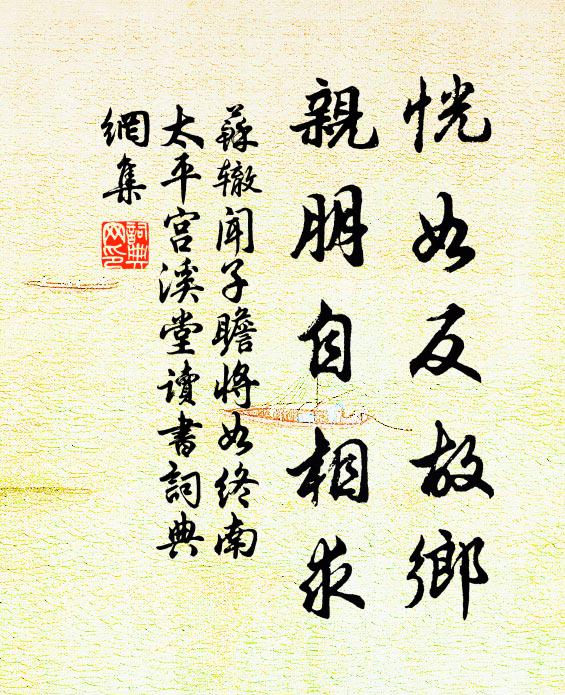 恍如反故鄉
親朋自相求
蘇辙闻子瞻将如终南
太平宫溪堂讀書詞典
網集
詞典网印